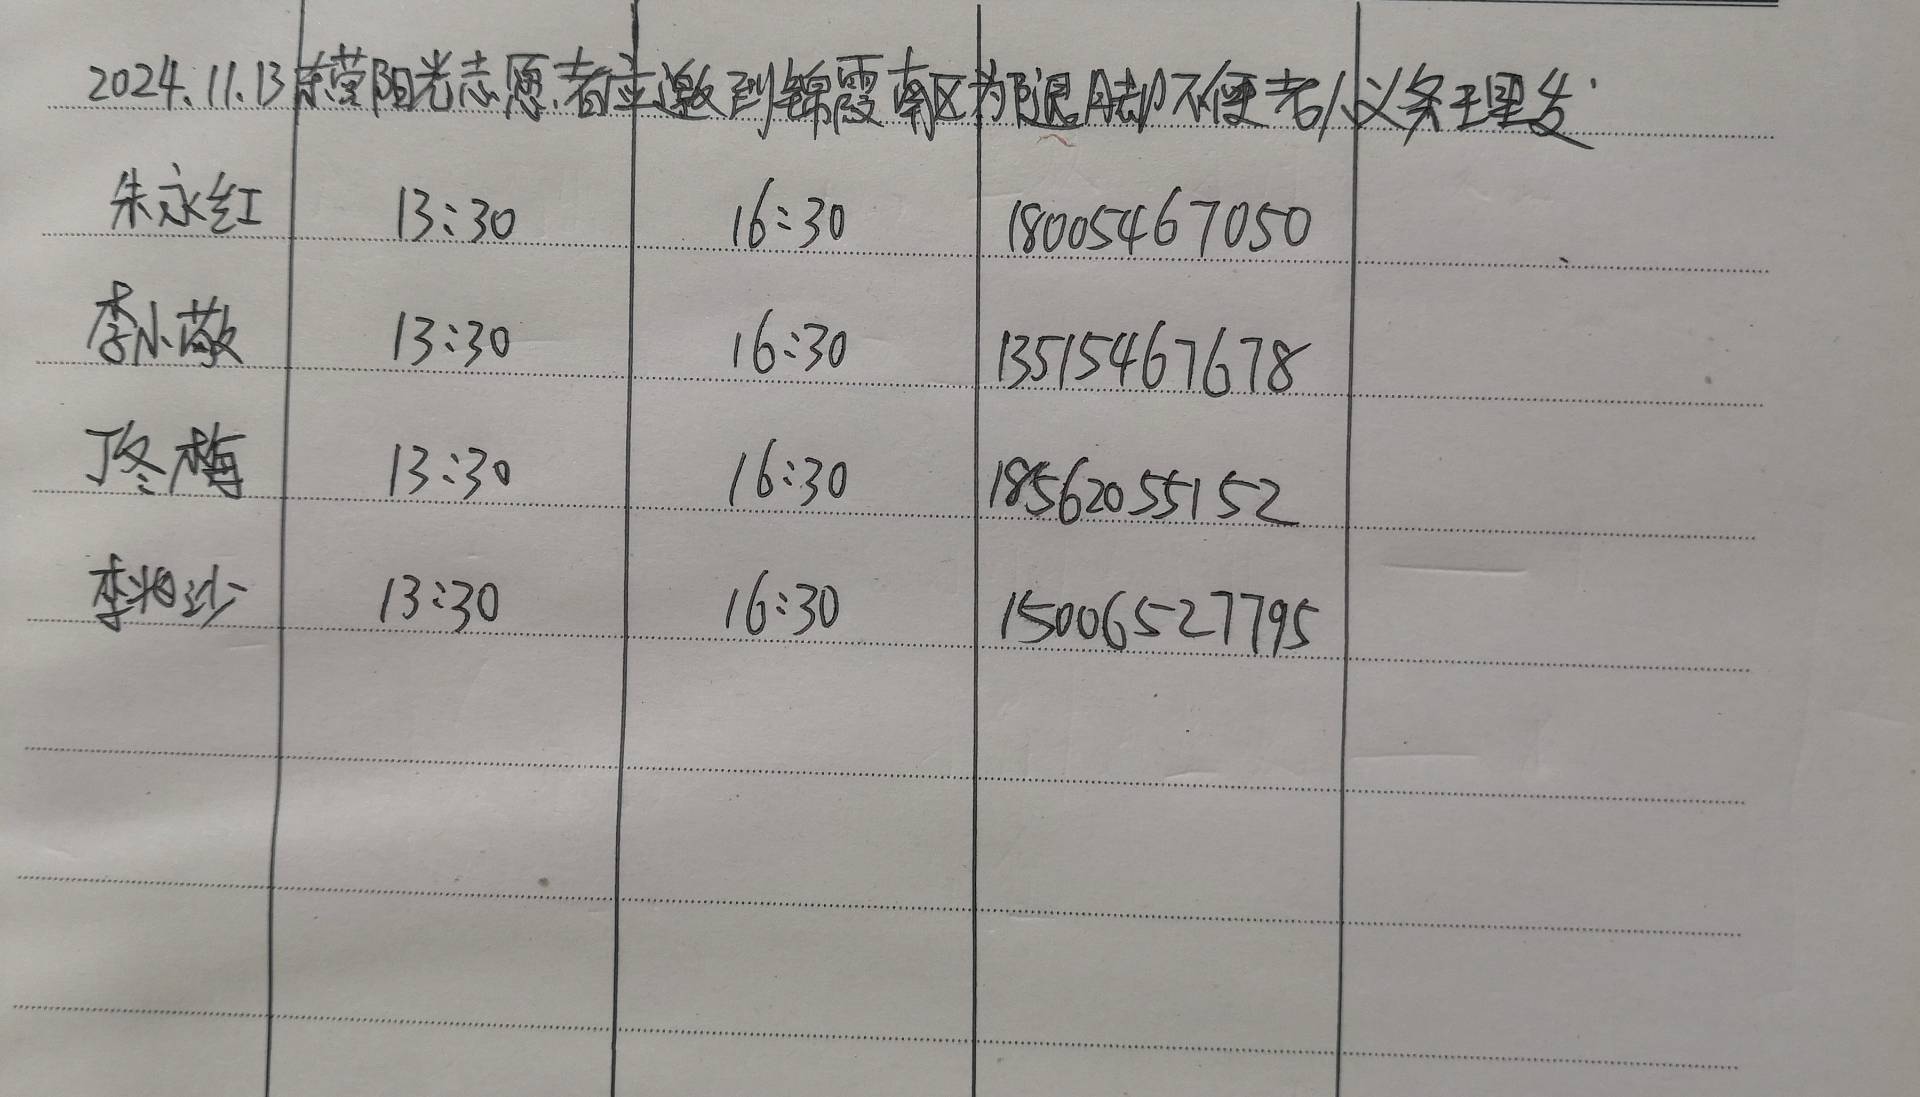 2024.11.13东营阳光志愿者应邀到锦霞南区为腿脚不便老人义务理发.
朱永红 13:30 16:30 18005467050
李小敬 13:30 16:30 13515467678
丁冬梅 13:30 16:30 18562055152
李 13:30 16:30 15006527795